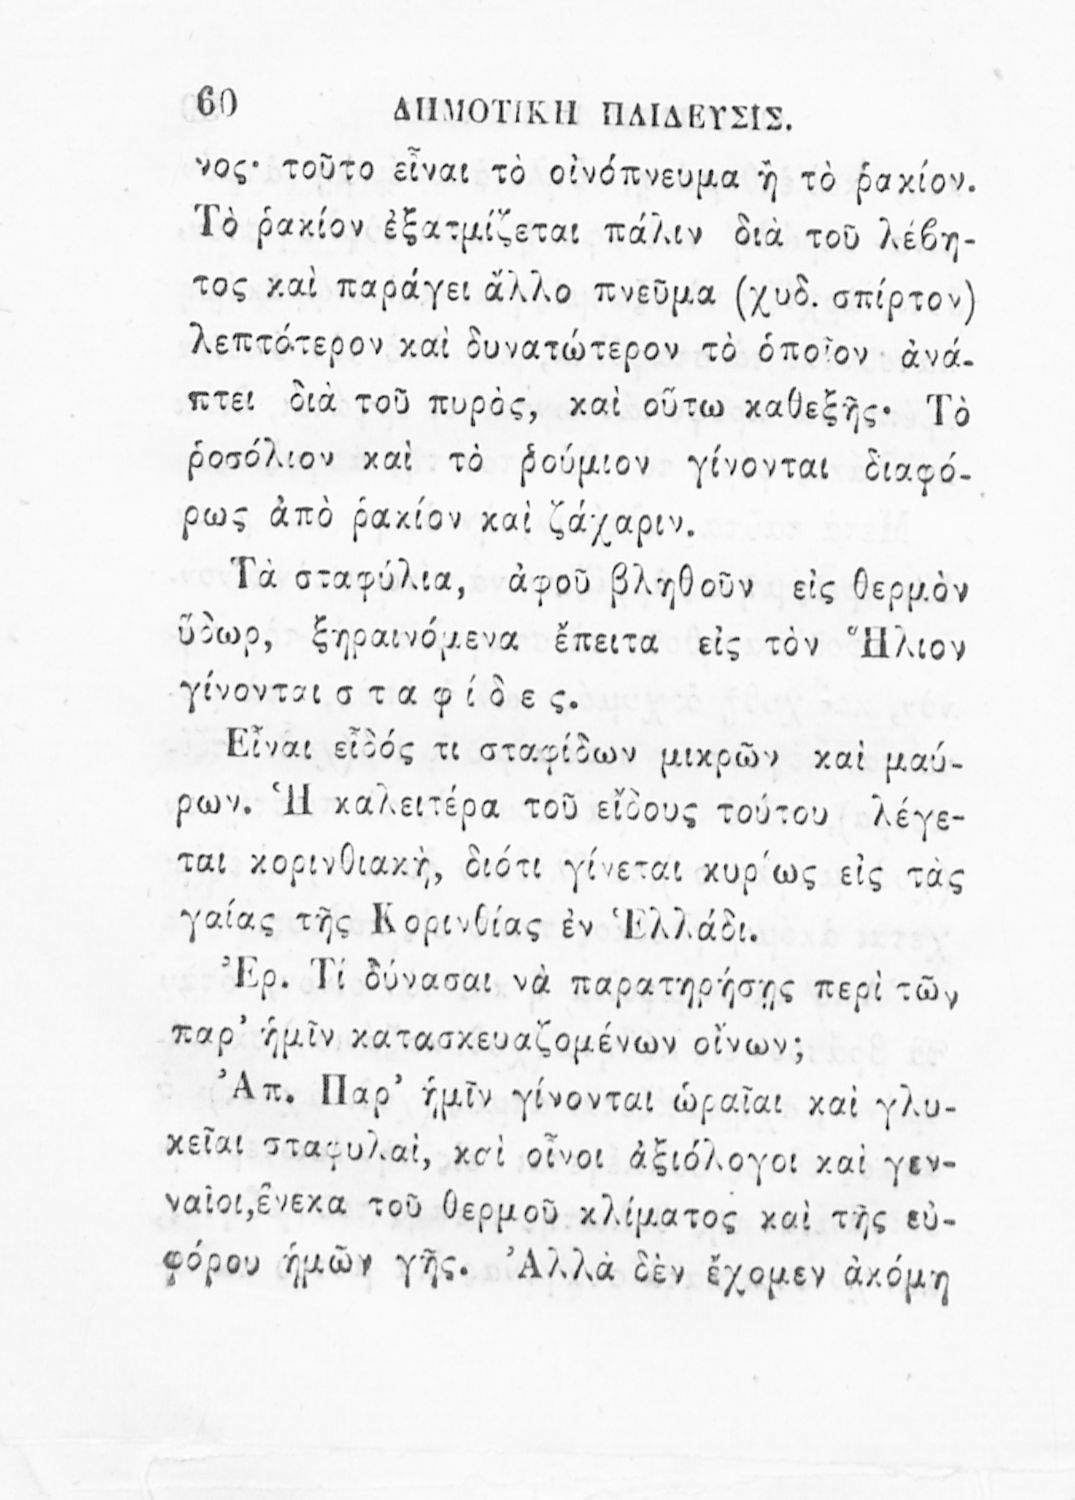 60 ΔΗΜΟΤΙΚΗ ΠΑΙΔΕΥΣΙΣ.
νος· τοῦτο εἶναι τὸ οἰνόπνευμα ἢ τὸ ῥακίον.
Τὸ ῥακίον ἐξατμίζεται πάλιν διὰ τοῦ λέβη-
τος καὶ παράγει ἄλλο πνεῦμα (χυδ. σπίρτον)
λεπτότερον καὶ δυνατώτερον τὸ ὁποῖον ἀνά-
πτει διὰ τοῦ πυρὸς, καὶ οὕτω καθεξῆς· Τὸ
ῥοσόλιον καὶ τὸ ῥούμιον γίνονται διαφό-
ρως ἀπὸ ῥακίον καὶ ζάχαριν.
Τὰ σταφύλια, ἀφοῦ βληθοῦν εἰς θερμὸν
ὕδωρ, ξηραινόμενα ἔπειτα εἰς τὸν Ἥλιον
γίνονται σ τ α φ ί δ ε ς.
Εἶναι εἶδός τι σταφίδων μικρῶν καὶ μαύ-
ρων. Ἡ καλειτέρα τοῦ εἴδους τούτου λέγε-
ται κορινθιακὴ, διότι γίνεται κυρίως εἰς τὰς
γαίας τῆς Κορινθίας ἐν Ἑλλάδι.
Ἐρ. Τί δύνασαι νὰ παρατηρήσῃς περὶ τῶν
παρ’ ἡμῖν κατασκευαζομένων οἴνων;
Ἀπ. Παρ’ ἡμῖν γίνονται ὡραῖαι καὶ γλυ-
κεῖαι σταφυλαὶ, καὶ οἶνοι ἀξιόλογοι καὶ γεν-
ναῖοι,ἕνεκα τοῦ θερμοῦ κλίματος καὶ τῆς εὐ-
φόρου ἡμῶν γῆς. Ἀλλὰ δὲν ἔχομεν ἀκόμη